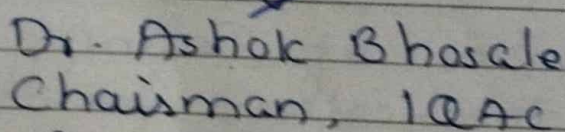 Dr. Ashok Bhosale
Chairman, IQAC